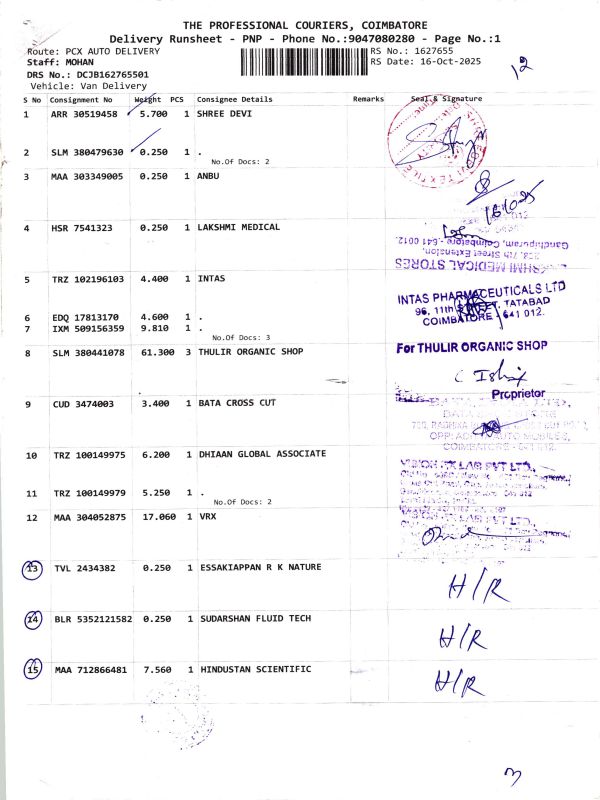 THE PROFESSIONAL COURIERS, COIMBATORE
Delivery Runsheet - PNP - Phone No.:9047080280 - Page No.:1
Route: PCX AUTO DELIVERY RS No.: 1627655
Staff: MOHAN RS Date: 16-Oct-2025
12
DRS No.: DCJB162765501
Vehicle: Van Delivery
S No Consignment No Weight PCS Consignee Details Remarks Seal & Signature
1 ARR 30519458 5.700 1 SHREE DEVI
2 SLM 380479630 0.250 1 .
No.Of Docs: 2
3 MAA 303349005 0.250 1 ANBU
4 HSR 7541323 0.250 1 LAKSHMI MEDICAL
LAKSHMI MEDICAL STORES
328, 7th Street Extension,
Gandhipuram, Coimbatore - 641 0012.
5 TRZ 102196103 4.400 1 INTAS
INTAS PHARMACEUTICALS LTD
96, 11th STREET, TATABAD
COIMBATORE - 641 012.
6 EDQ 17813170 4.600 1 .
7 IXM 509156359 9.810 1 .
No.Of Docs: 3
8 SLM 380441078 61.300 3 THULIR ORGANIC SHOP
For THULIR ORGANIC SHOP
Proprietor
9 CUD 3474003 3.400 1 BATA CROSS CUT
10 TRZ 100149975 6.200 1 DHIAAN GLOBAL ASSOCIATE
11 TRZ 100149979 5.250 1 .
No.Of Docs: 2
12 MAA 304052875 17.060 1 VRX
13 TVL 2434382 0.250 1 ESSAKIAPPAN R K NATURE H/R
14 BLR 5352121582 0.250 1 SUDARSHAN FLUID TECH H/R
15 MAA 712866481 7.560 1 HINDUSTAN SCIENTIFIC H/R
3